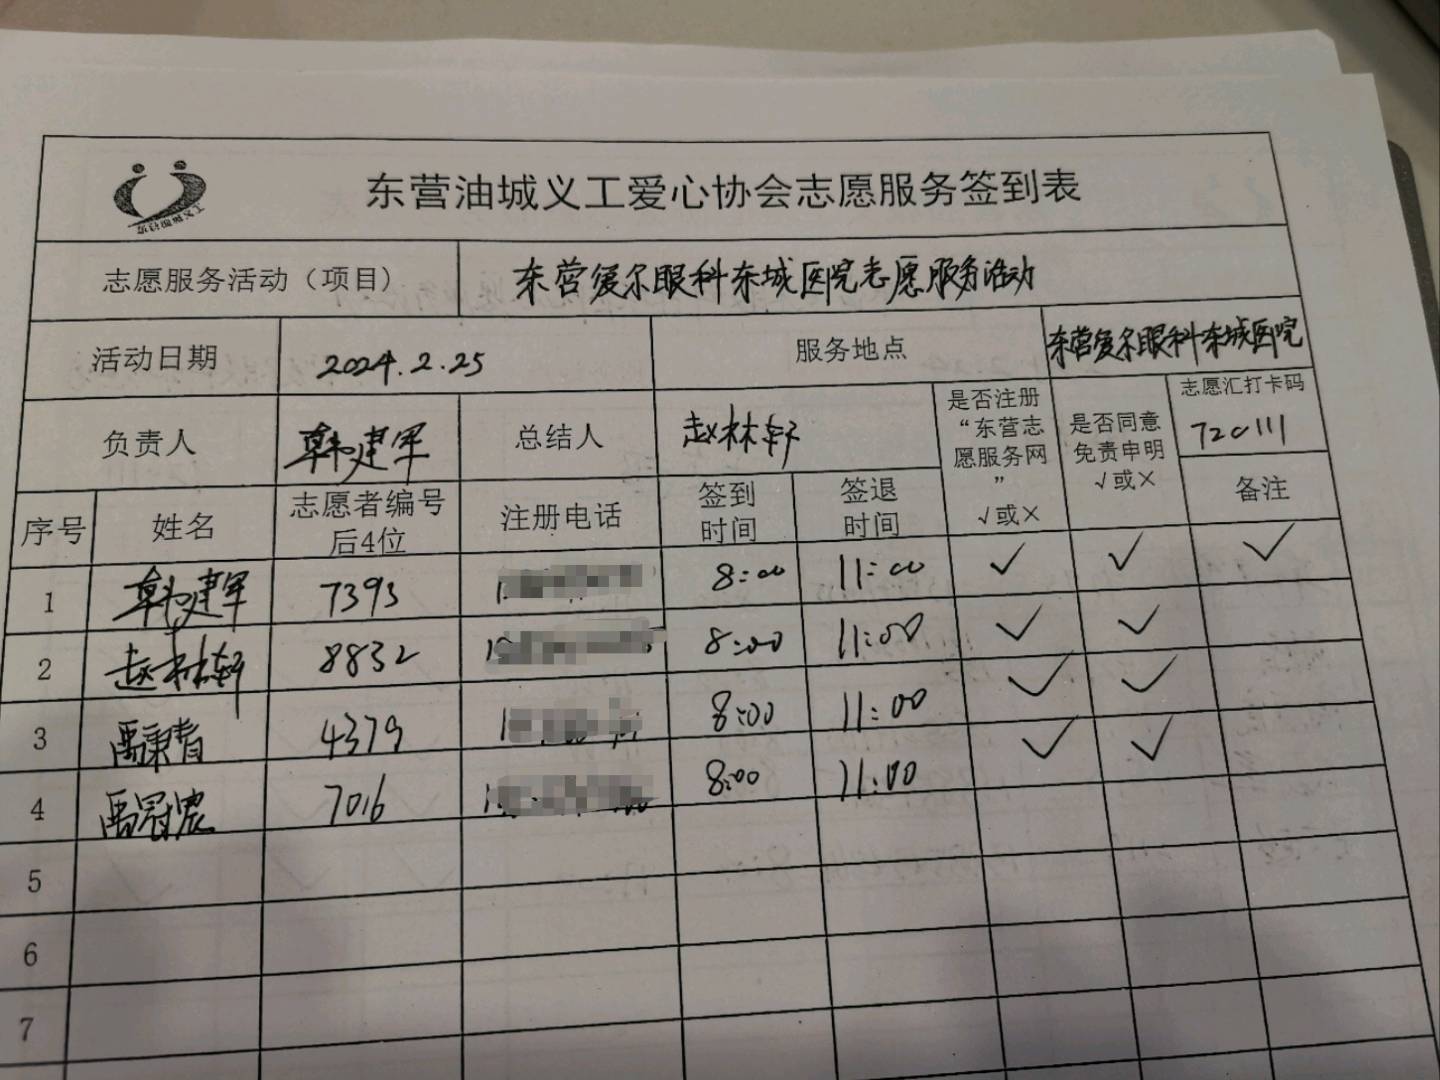 东营油城义工
东营油城义工爱心协会志愿服务签到表
志愿服务活动（项目） 东营爱尔眼科东城医院志愿服务活动
活动日期 2024.2.25 服务地点 东营爱尔眼科东城医院
负责人 韩建军 总结人 赵林轩 是否注册“东营志愿服务网” √或× 是否同意免责申明 √或× 志愿汇打卡码 720111
序号 姓名 志愿者编号后4位 注册电话 签到时间 签退时间 备注
1 韩建军 7393 8:00 11:00 ✓ ✓ ✓
2 赵林轩 8832 8:00 11:00 ✓ ✓
3 禹秉睛 4379 8:00 11:00 ✓ ✓
4 禹冠宸 7016 8:00 11:00 ✓ ✓
5
6
7